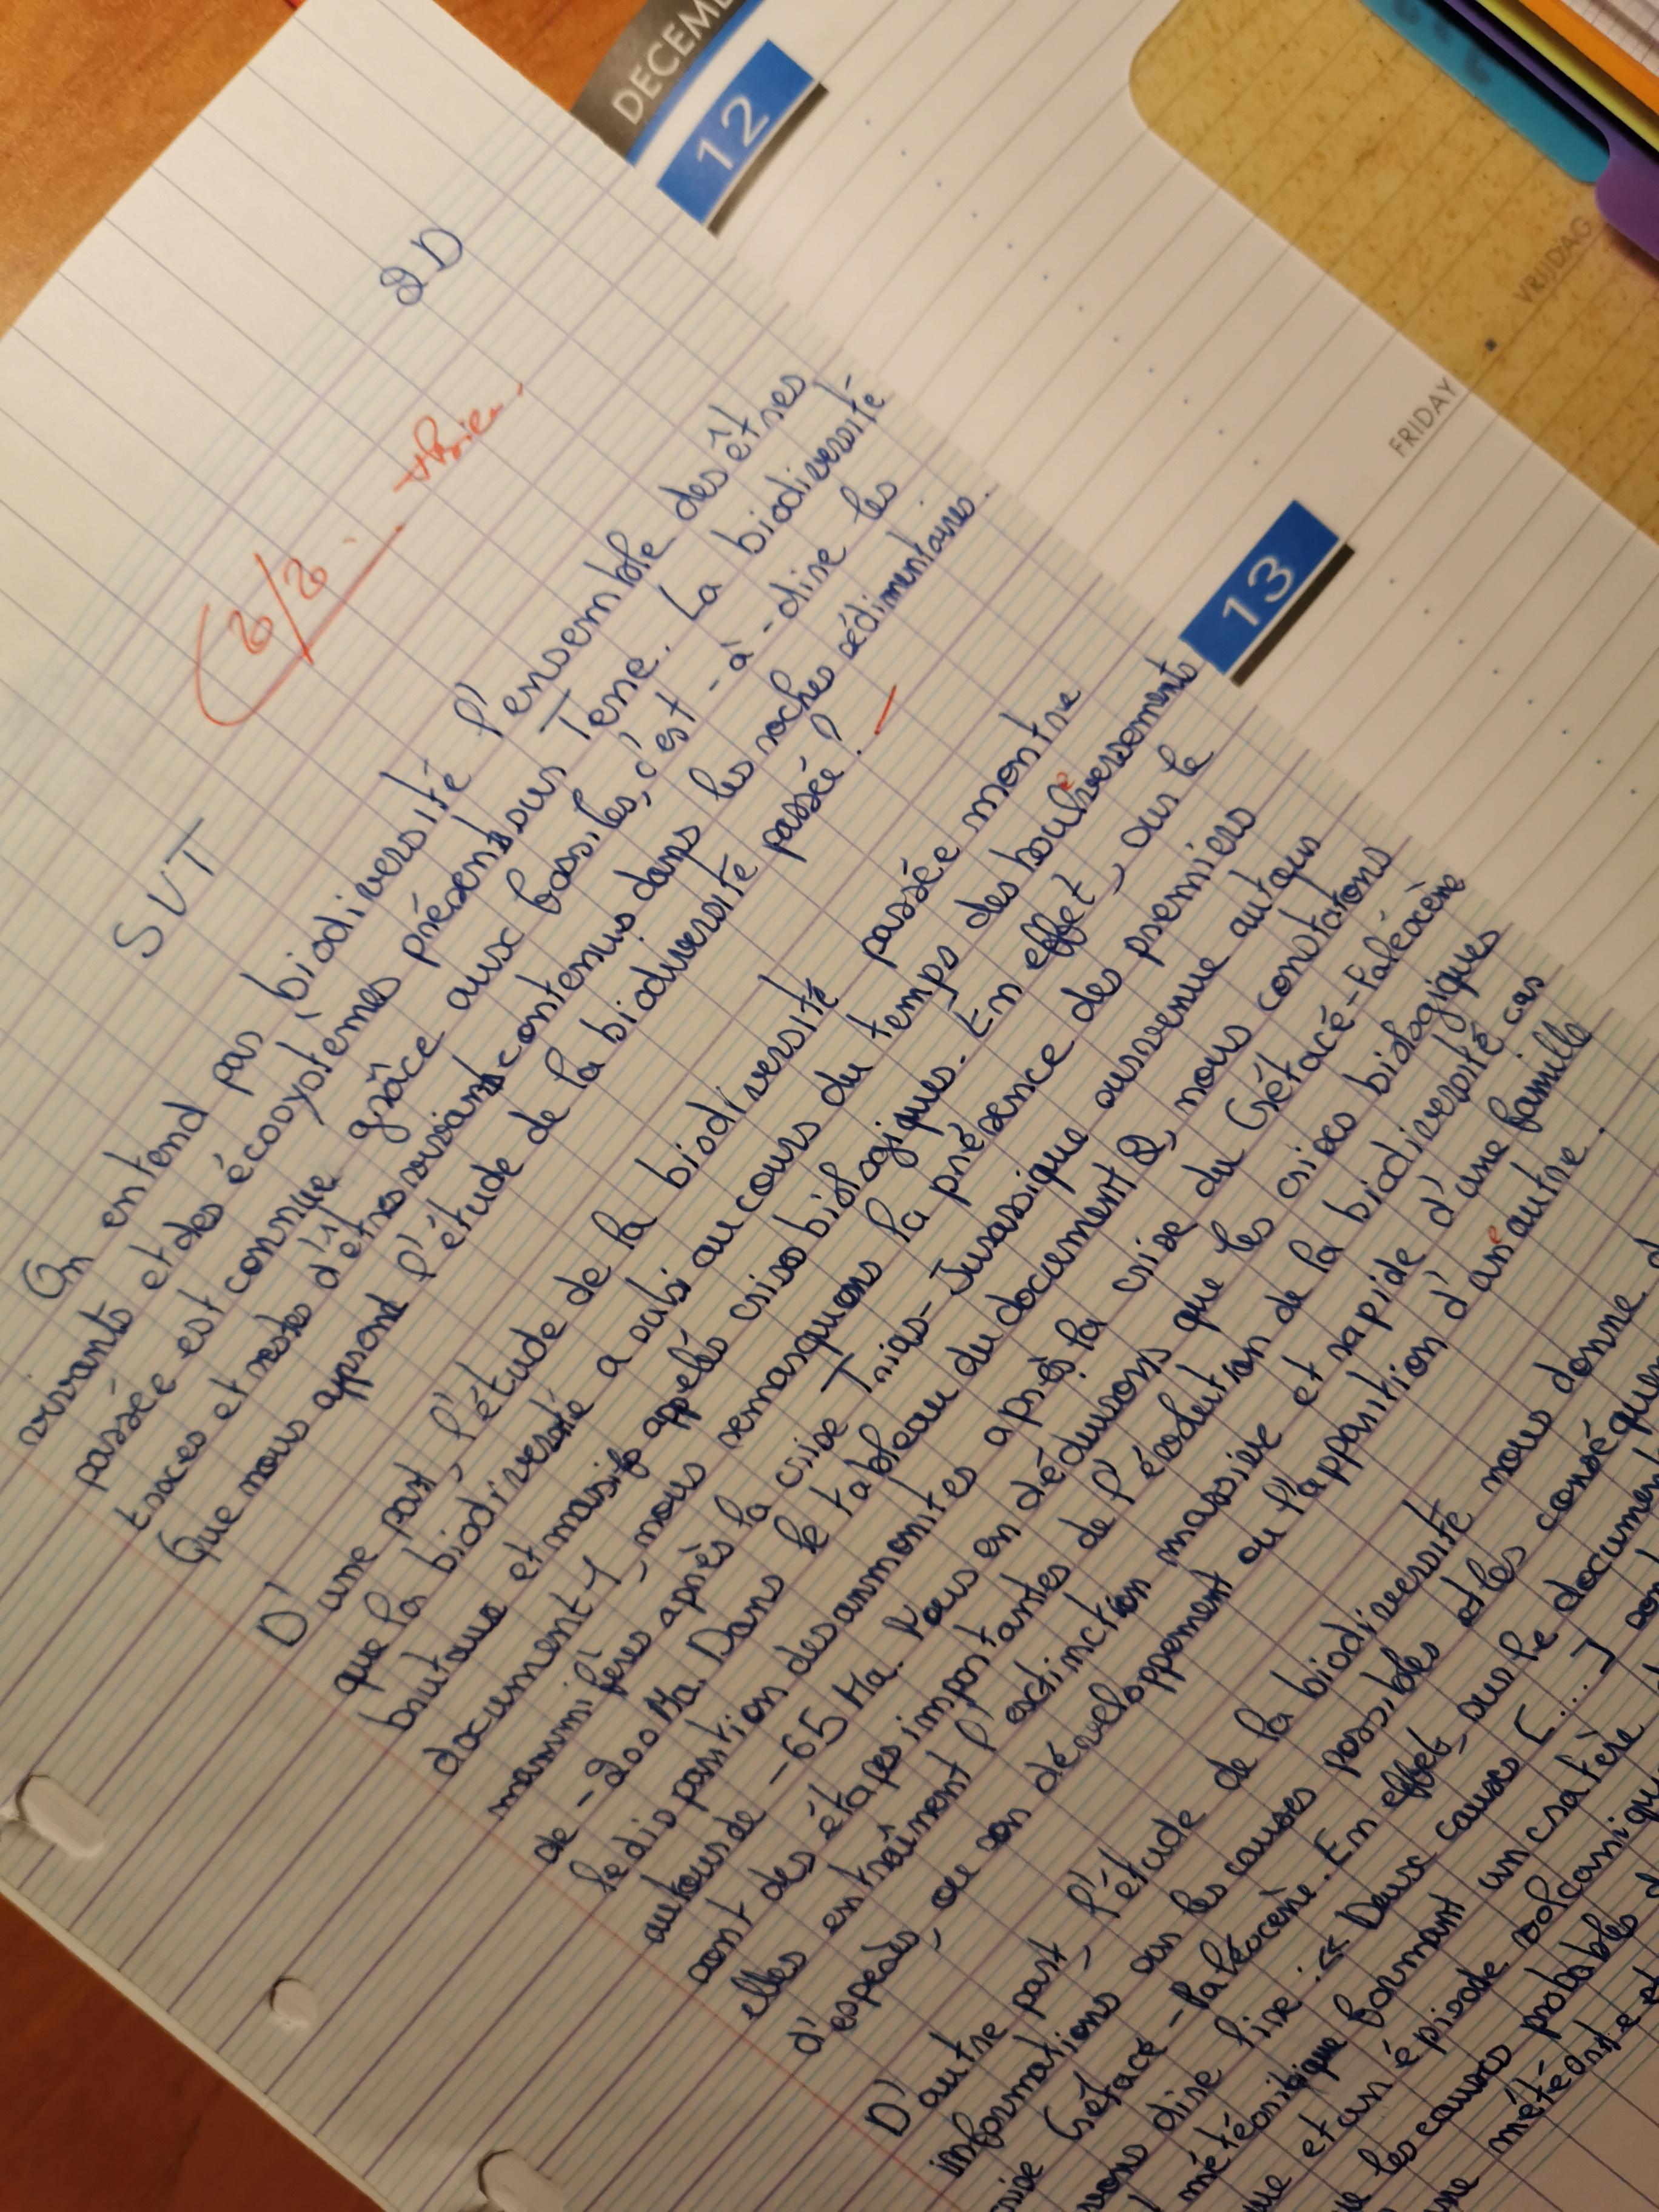 2D
SVT
2/2
On entend par biodiversité l'ensemble des êtres
vivants et des écosystèmes présents sur Terre. La biodiversité
passée est connue grâce aux fossiles, c'est-à-dire les
traces et restes d'êtres vivants contenus dans les roches sédimentaires.
Que nous apprend l'étude de la biodiversité passée ?
D'une part, l'étude de la biodiversité passée montre
que la biodiversité a subi au cours du temps des boulversements
brutaux et massifs appelés crises biologiques. En effet, sur le
document 1, nous remarquons la présence des premiers
mammifères après la crise Trias-Jurassique survenue autour
de -200 Ma. Dans le tableau du document 2, nous constatons
la disparition des ammonites après la crise du Crétacé-Paléocène
autour de -65 Ma. Nous en déduisons que les crises biologiques
sont des étapes importantes de l'évolution de la biodiversité car
elles entraînent l'extinction massive et rapide d'une famille
d'espèces, ou son développement ou l'apparition d'une autre.
D'autre part, l'étude de la biodiversité nous donne
informations sur les causes possibles et les
crise Crétacé-Paléocène. En effet, sur le
dire lire : « Deux causes [...]
météoritique formant un cratère
et un épisode
les causes probables
météorite et
DECEM
12
13
FRIDAY
VRIJDAG